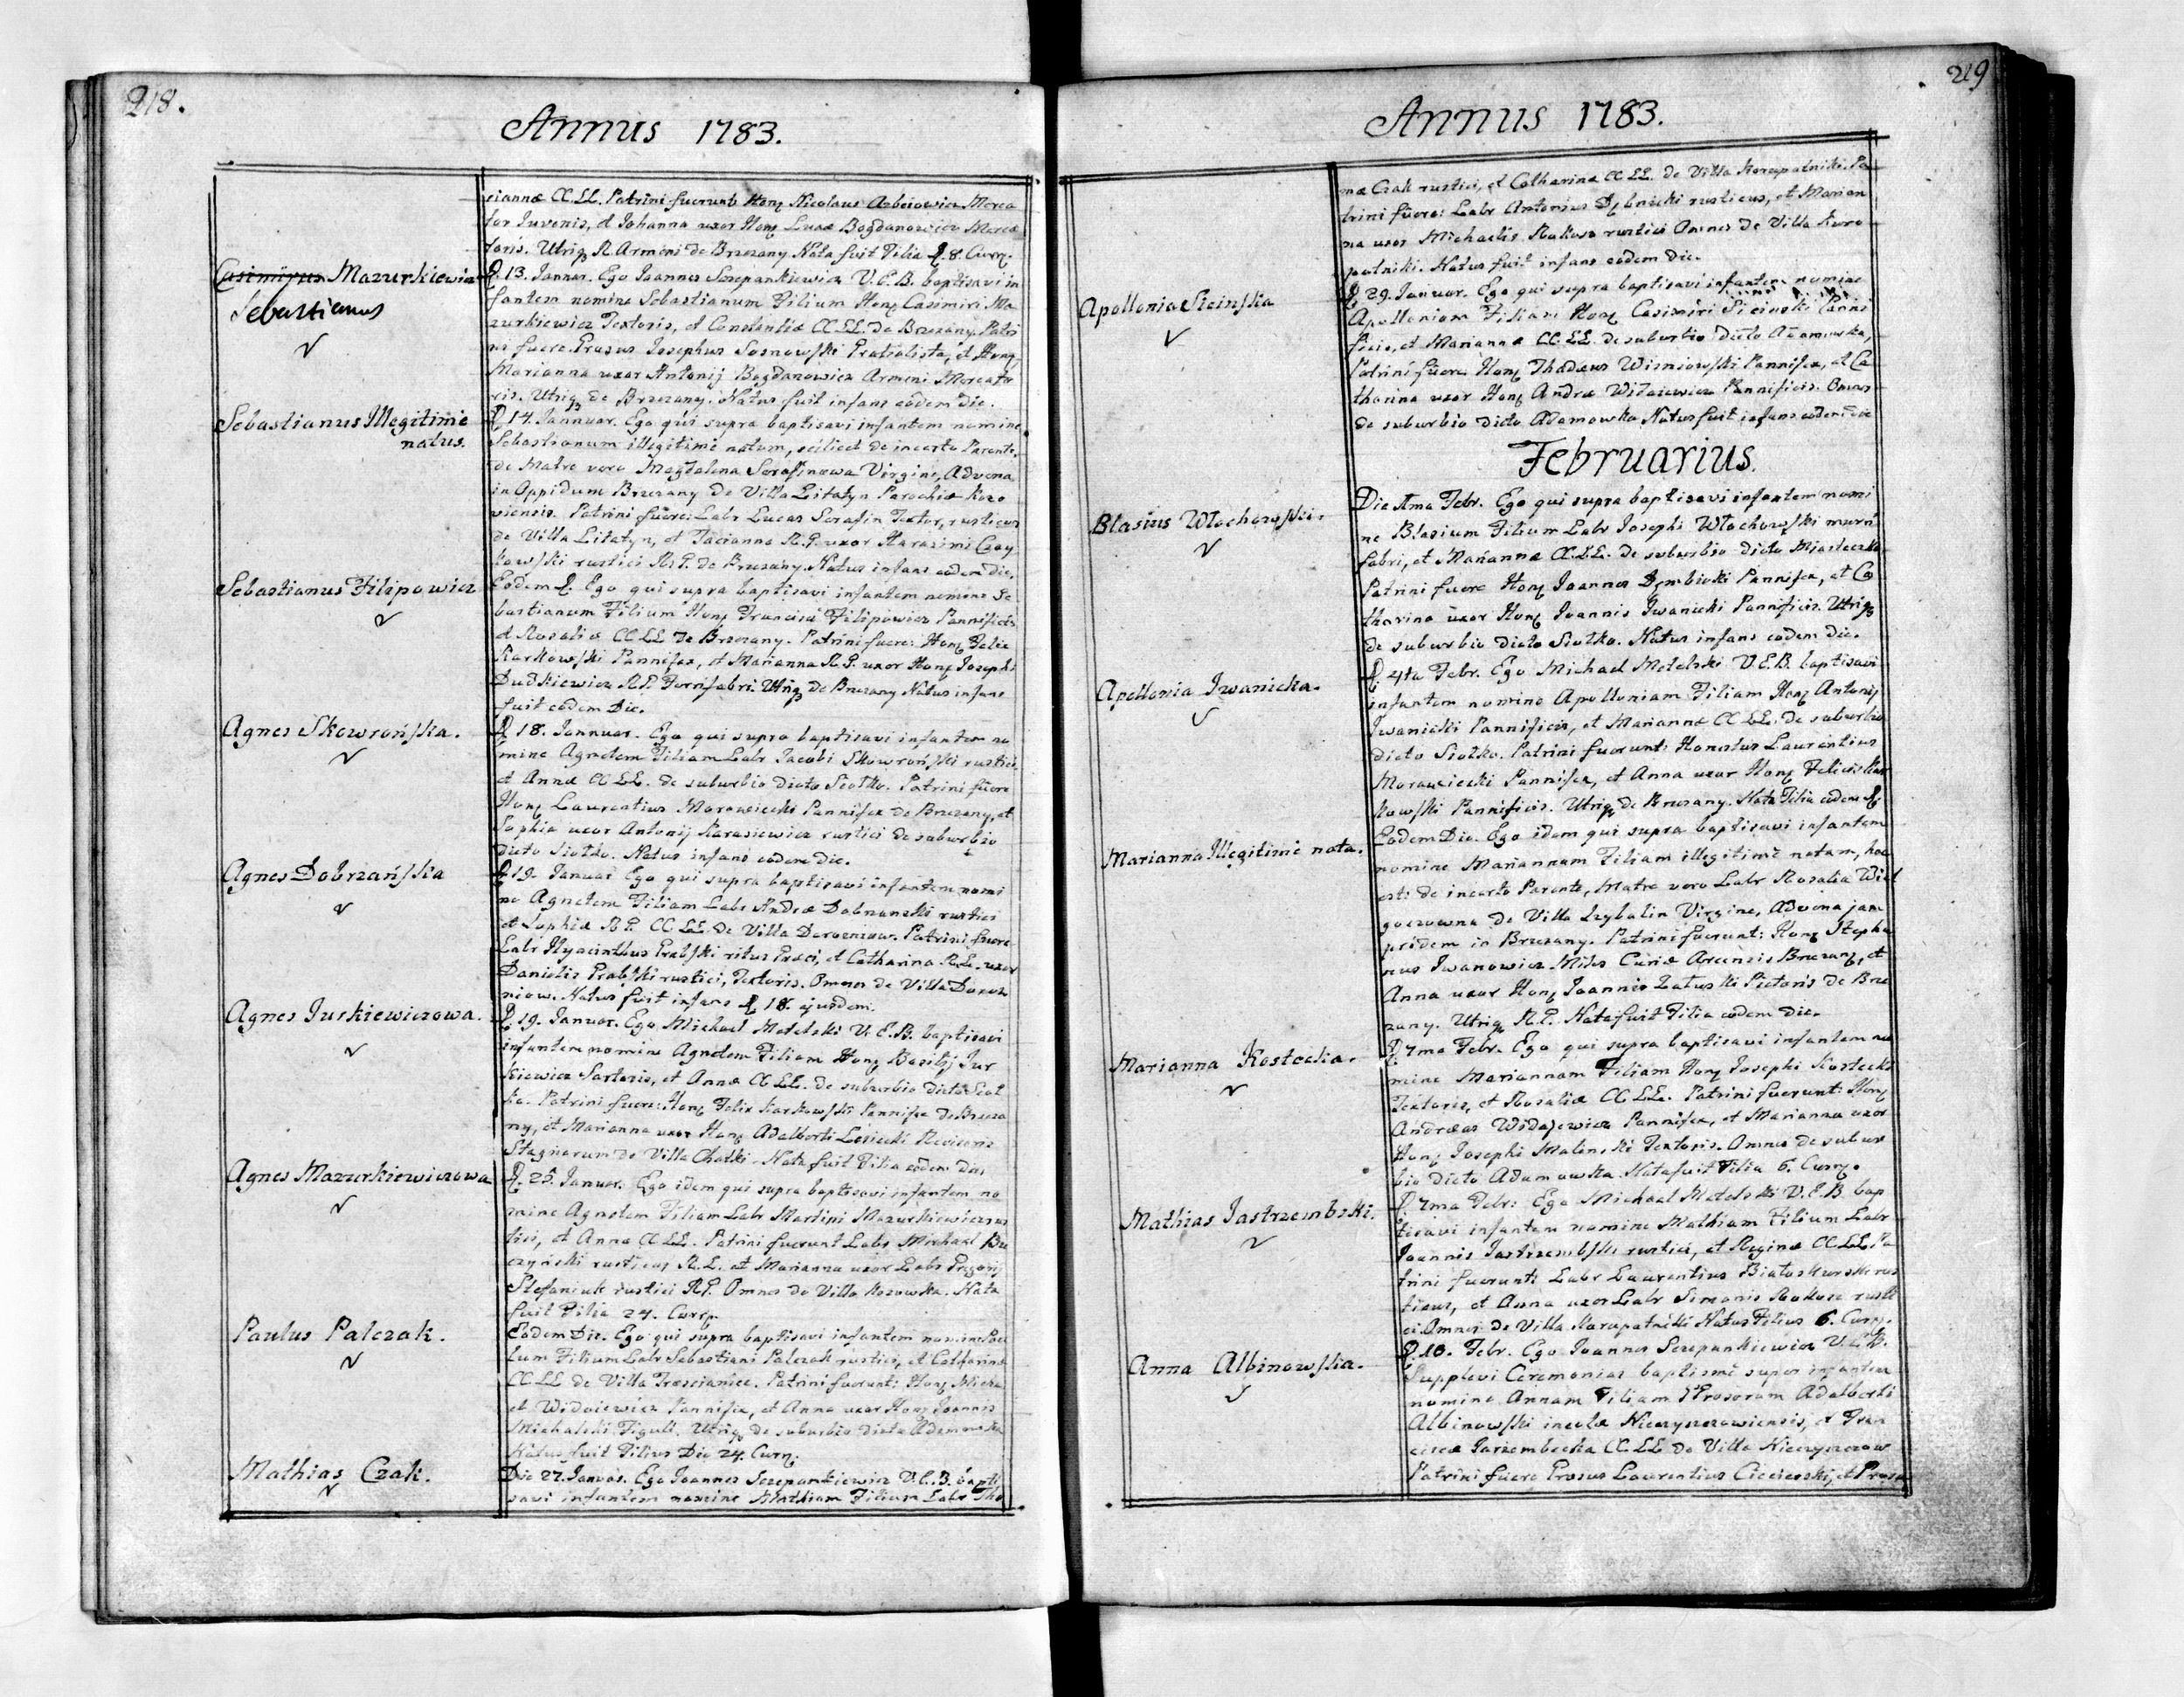 218.
Annus 1783.
riannæ CC.LL. Patrini fuerunt Hon Nicolaus Merca
tor Iuvenis, et Iohanna uxor Hon Lucæ Bogdanowicz Merca
toris. Utriq R. Armeni de Brzezany Nata fuit Filia D. 8. Curr.
Casimirus Mazurkiewicz
Sebastianus
D. 13. Iannar. Ego Ioannes Szczepankiewicz V.E.B. baptisavi in
fantem nomine Sebastianum Filium Hon Casimiri Ma
zurkiewicz Textoris, et Constantiæ CC.LL. de Brzezany. Patri
ni fuere. Iosephus Sosnowski et Hon
Marianna uxor Antonij Bogdanowicz Armeni Mercato
ris. Utriq de Brzezany. Natus fuit infans eodem die.
Sebastianus Illegitimè
natus.
D 14. Iannuar. Ego qui supra baptisavi infantem nomine
Sebastianum illegitimè natum, scilicet de incerto Parente,
de Matre vero Magdalena Serafinowa Virgine, Advena
in Oppidum Brzezany de Villa Litatyn Parochiæ Kozo
viensis. Patrini fuere: Labr Lucas Serafin Textor, rusticus
de Villa Litatyn, et Tacianna R.G. uxor Harasimi
kowski rustici R.G. de Brzezany. Natus infans eodem die.
Sebastianus Filipowicz
Eodem D. Ego qui supra baptisavi infantem nomine Se
bastianum Filium Hon Francisci Filipowicz Pannificis
et Rosaliæ CC LL de Brzezany. Patrini fuere: Hon Felix
Karkowski Pannifex, et Marianna R.G. uxor Hon Iosephi
Dudkiewicz R.G. Utriq de Brzezany Natus infans
fuit eodem Die.
Agnes Skowrońska.
D 18. Iannuar. Ego qui supra baptisavi infantem no
mine Agnetem Filiam Labr Iacobi Skowroński rustici
et Annæ CC LL. de suburbio dicto Siołko. Patrini fuere
Hon Laurentius Morawiecki Pannifex de Brzezany, et
Sophia uxor Antonij Karasiewicz rustici de suburbio
dicto Siołko. Natus infans eodem die.
Agnes Dobrzańska
D 19. Ianuar Ego qui supra baptisavi infantem nomi
ne Agnetem Filiam Labr Andreæ Dobrzanski rustici
et Sophiæ R.G. CC.LL. de Villa. Patrini fuere
Labr Hyacinthus ritus Græci, et Catharina R.L. uxor
Danielis rustici, Textoris. Omnes de Villa
niow. Natus fuit infans D 18. ejusdem.
Agnes Iurkiewiczowa.
D 19. Ianuar. Ego Michael Motelski V.E.B. baptisavi
infantem nomine Agnetem Filiam Hon Basilij Iur
kiewicz Sartoris, et Annæ CC LL. de suburbio dicto Sioł
ko. Patrini fuere: Hon Felix Karkowski Pannifex de Brzeza
ny, et Marianna uxor Hon Adalberti Lesiecki Revisoris
Stagnorum de Villa Chatki. Nata fuit Filia eodem die.
Agnes Mazurkiewiczowa
D. 25. Ianuar. Ego idem qui supra baptisavi infantem no
mine Agnetem Filiam Labr Martini Mazurkiewicz rus
tici, et Annæ CC LL. Patrini fuerunt Labr Michael Bu
czyński rusticus R.L. et Marianna uxor Labr Gregorij
Stefaniuk rustici R.G. Omnes de Villa Kozowka. Nata
fuit Filia 24. Curr.
Paulus Palczak.
Eodem Die. Ego qui supra baptisavi infantem nomine Pau
lum Filium Labr Sebastiani Palczak rustici, et Catharinæ
CC LL de Villa Trosciamiec. Patrini fuerunt: Hon Micha
el Widaiewicz Pannifex, et Anna uxor Hon Ioannis
Michalski Figuli. Utriq de suburbio dicto Adamowka
Natus fuit Filius Die 24. Curr.
Mathias Czak.
Die 27. Ianuar. Ego Ioannes Szczepankiewicz V.E.B. bapti
savi infantem nomine Mathiam Filium Labr Tho
219
Annus 1783.
mæ Czak rustici, et Catharinæ CC LL. de Villa Korzpatniki. Pa
trini fuere: Labr Antonius Dębnicki rusticus, et Marian
na uxor Michaelis Rokosz rustici Omnes de Villa Kuro
patniki. Natus fuit infans eodem die.
Apollonia Sicinska
D 29. Ianuar. Ego qui supra baptisavi infantem nomine
Apolloniam Filiam Hon Casimiri Sicinski Panni
ficis, et Mariannæ CC.LL. de suburbio dicto Adamowka,
Patrini fuere Hon Thadæus Wisniowski Pannifex, et Ca
tharina uxor Hon Andreæ Widaiewicz Pannificis. Omnes
de suburbio dicto Adamowka Natus fuit infans eodem die
Februarius.
Blasius Włochowski.
Die 1ma Febr. Ego qui supra baptisavi infantem nomi
ne Blasium Filium Labr Iosephi Włochowski muri
fabri, et Mariannæ CC.LL. de suburbio dicto Miasteczko,
Patrini fuere Hon Ioannes Dębicki Pannifex, et Ca
tharina uxor Hon Ioannis Iwanicki Pannificis. Utriq
de suburbio dicto Siołko. Natus infans eodem die.
Apollonia Iwanicka.
D 4ta Febr. Ego Michael Motelski V.E.B. baptisavi
infantem nomine Apolloniam Filiam Hon Antonij
Iwanicki Pannificis, et Mariannæ CC LL. de suburbio
dicto Siołko. Patrini fuerunt: Honestus Laurentius
Morawiecki Pannifex, et Anna uxor Hon Felicis Kar
kowski Pannificis. Utriq de Brzezany. Nata Filia eodem D.
Marianna Illegitimè nata.
Eodem Die. Ego idem qui supra baptisavi infantem
nomine Mariannam Filiam illegitimè natam, hoc
est: de incerto Parente, Matre vero Labr Rosalia
de Villa Virgine, Advena jam
pridem in Brzezany. Patrini fuerunt: Hon Stepha
nus Iwanowicz Miles Curiæ Arcensis Brzezany, et
Anna uxor Hon Ioannis Załuski Pictoris de Brze
zany. Utriq R.G. Nata fuit Filia eodem die.
Marianna Kostecka.
D. 7ma Febr. Ego qui supra baptisavi infantem no
mine Mariannam Filiam Hon Iosephi Kostecki
Textoris, et Rosaliæ CC LL. Patrini fuerunt: Hon
Andreas Widajewicz Pannifex, et Marianna uxor
Hon Iosephi Malinski Textoris. Omnes de subur
bio dicto Adamowka. Nata fuit Filia 6. Curr.
Mathias Iastrzembski.
D 7ma Febr: Ego Michael Motelski V.E.B. bap
tisavi infantem nomine Mathiam Filium Labr
Ioannis Iastrzembski rustici, et Reginæ CC LL Pa
trini fuerunt: Labr Laurentius Białoskurski rus
ticus, et Anna uxor Labr Simonis Rokosz rusti
ci Omnes de Villa Kuropatniki Natus Filius 6. Curr.
Anna Albinowska.
D 10. Febr. Ego Ioannes Szczepankiewicz V.E.B.
Supplevi Ceremonias baptismi super infantem
nomine Annam Filiam Adalberti
Albinowski incolæ et Fran
ciscæ Iarzembecka CC.LL de Villa
Patrini fuere Laurentius et